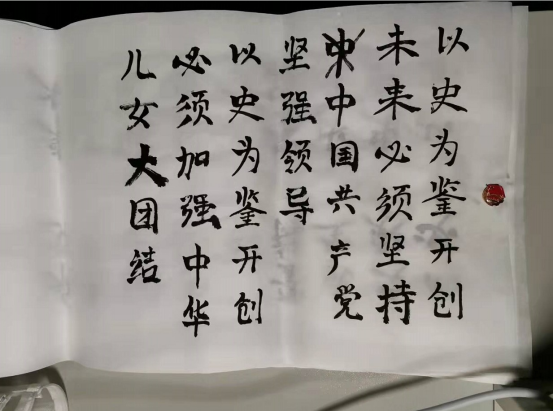 以史为鉴开创
未来必须坚持
中国共产党
坚强领导
以史为鉴开创
必须加强中华
儿女大团结